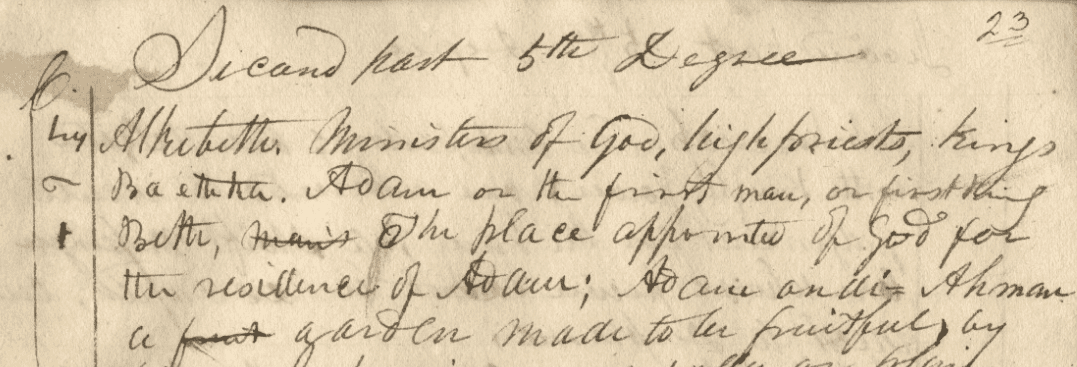 23
Second part 5th Degree
Alkebeth. Ministers of God, high priests, Kings
Baeth ka. Adam or the first man, or first King
Beth, man's The place appointed of God for
the residence of Adam; Adam ondi= Ahman
a fruit garden made to be fruitful, by